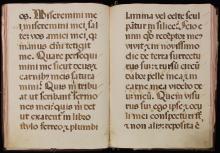 os. Miseremini me
i miseremini mei sal
tem uos amici mei
quia manus dñi tetigit
me. Quare persequi
mini me sicut deus: et
carnibus meis satura
mini? Quis mi tribu
at ut scribant sermo
nes mei: quis mi det
ut exarent in libro
stylo ferreo: et plumbi
lamina vel celte scul
pant in silice? Scio e
nim qd redeptor meus
vivit: et in novissimo
die de terra surrectu
rus suz: et rursus circū
dabor pelle mea: et in
carne mea videbo de
um meū. Quem visu
rus suz ego ipse: et occu
li mei conspecturi st
et non alius: reposita ē